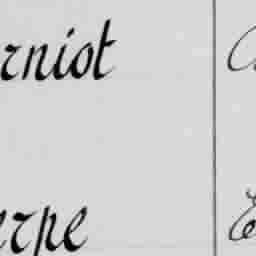 rniot
erpe